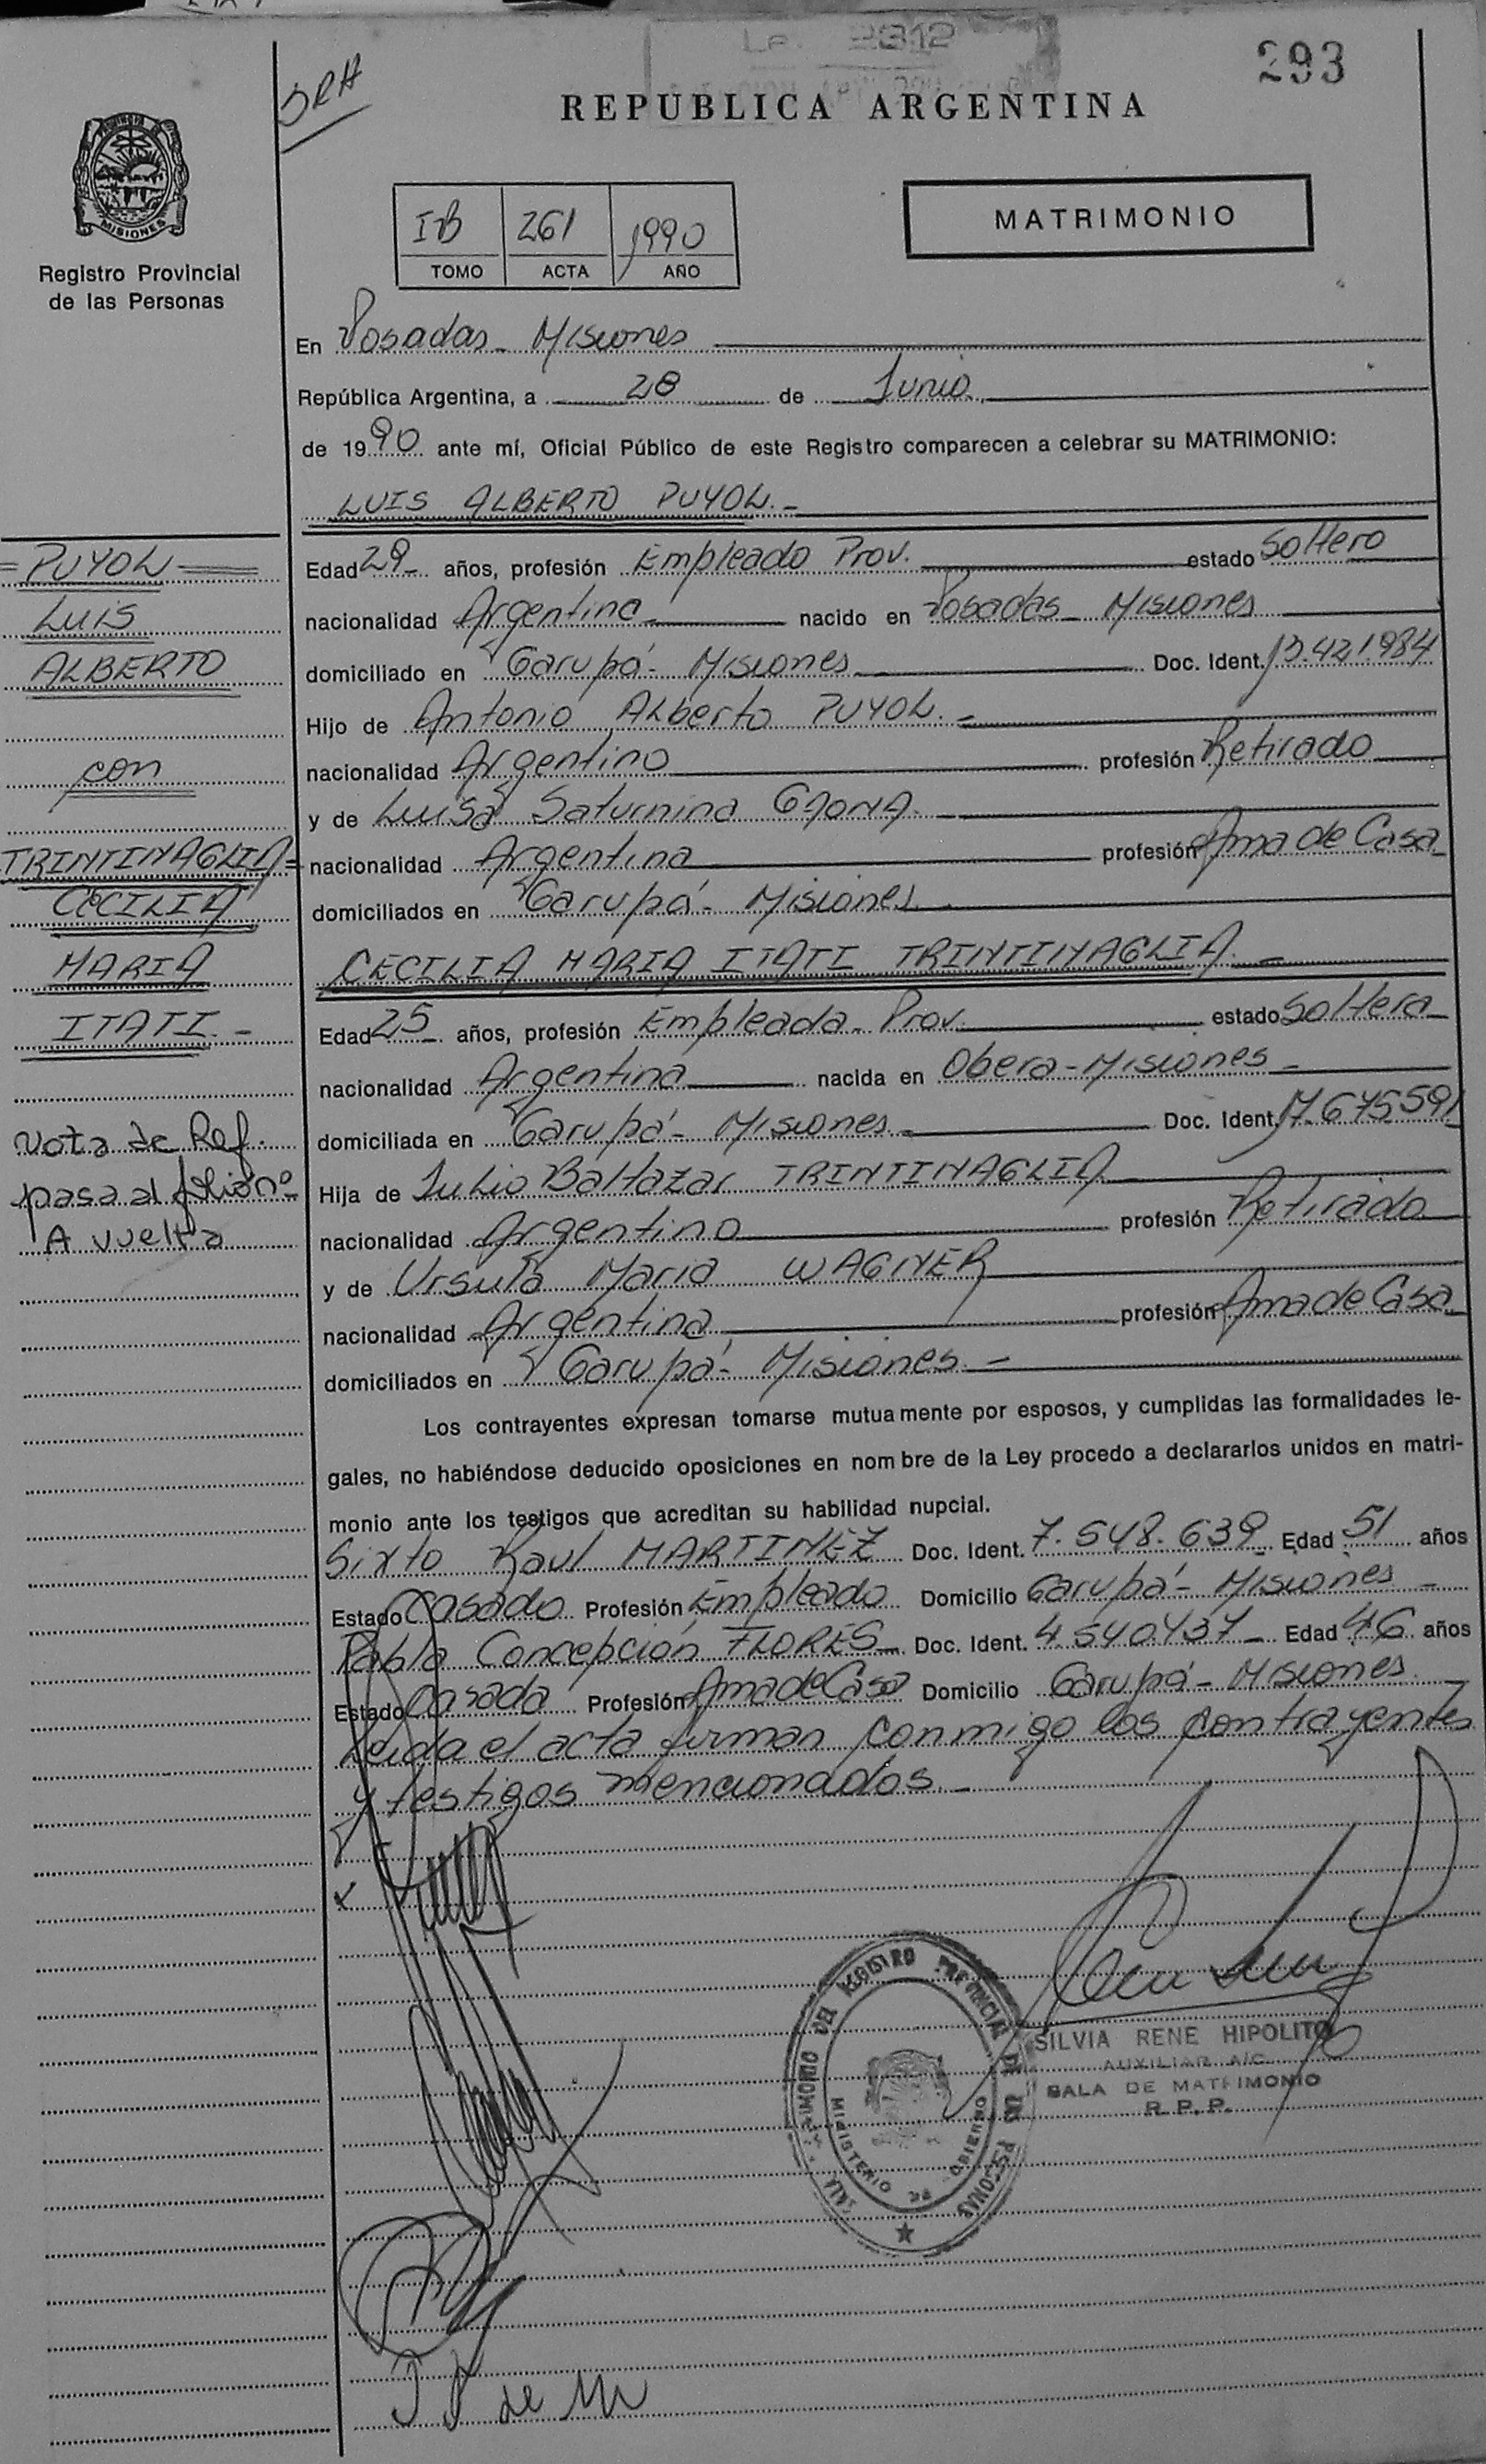 293
SRH
REPUBLICA ARGENTINA
MISIONES
Registro Provincial
de las Personas
IB 261 1990
TOMO ACTA AÑO
MATRIMONIO
En Posadas - Misiones
República Argentina, a 28 de Junio
de 1990 ante mí, Oficial Público de este Registro comparecen a celebrar su MATRIMONIO:
LUIS ALBERTO PUYOL.-
Edad 29 años, profesión Empleado Prov. estado Soltero
nacionalidad Argentina nacido en Posadas - Misiones
domiciliado en Garupá - Misiones Doc. Ident. 13.421984
Hijo de Antonio Alberto PUYOL.-
nacionalidad Argentino profesión Retirado
y de Luisa Saturnina GAONA.-
nacionalidad Argentina profesión Ama de Casa
domiciliados en Garupá - Misiones.-
CECILIA MARIA ITATI TRINTINAGLIA.-
Edad 25 años, profesión Empleada - Prov. estado Soltera
nacionalidad Argentina nacida en Obera - Misiones -
domiciliada en Garupá - Misiones.- Doc. Ident. 17.675591
Hija de Julio Baltazar TRINTINAGLIA
nacionalidad Argentino profesión Retirado
y de Ursula Maria WAGNER
nacionalidad Argentina profesión Ama de Casa
domiciliados en Garupá - Misiones.-
Los contrayentes expresan tomarse mutuamente por esposos, y cumplidas las formalidades le-
gales, no habiéndose deducido oposiciones en nombre de la Ley procedo a declararlos unidos en matri-
monio ante los testigos que acreditan su habilidad nupcial.
Sixto Raul MARTINEZ Doc. Ident. 7.548.639 Edad 51 años
Estado Casado Profesión Empleado Domicilio Garupá - Misiones -
Pabla Concepción FLORES Doc. Ident. 4.540.437 Edad 46 años
Estado Casada Profesión Ama de Casa Domicilio Garupá - Misiones.
Leida el acta firman conmigo los contrayentes
y testigos mencionados.-
PUYOL
LUIS
ALBERTO
con
TRINTINAGLIA
CECILIA
MARIA
ITATI.-
Nota de Ref.
pasa al folio nº
A vuelta
DEL REGISTRO PROVINCIAL DE LAS PERSONAS
MINISTERIO DE GOBIERNO
SILVIA RENE HIPOLITO
AUXILIAR A/C
SALA DE MATRIMONIO
R.P.P.